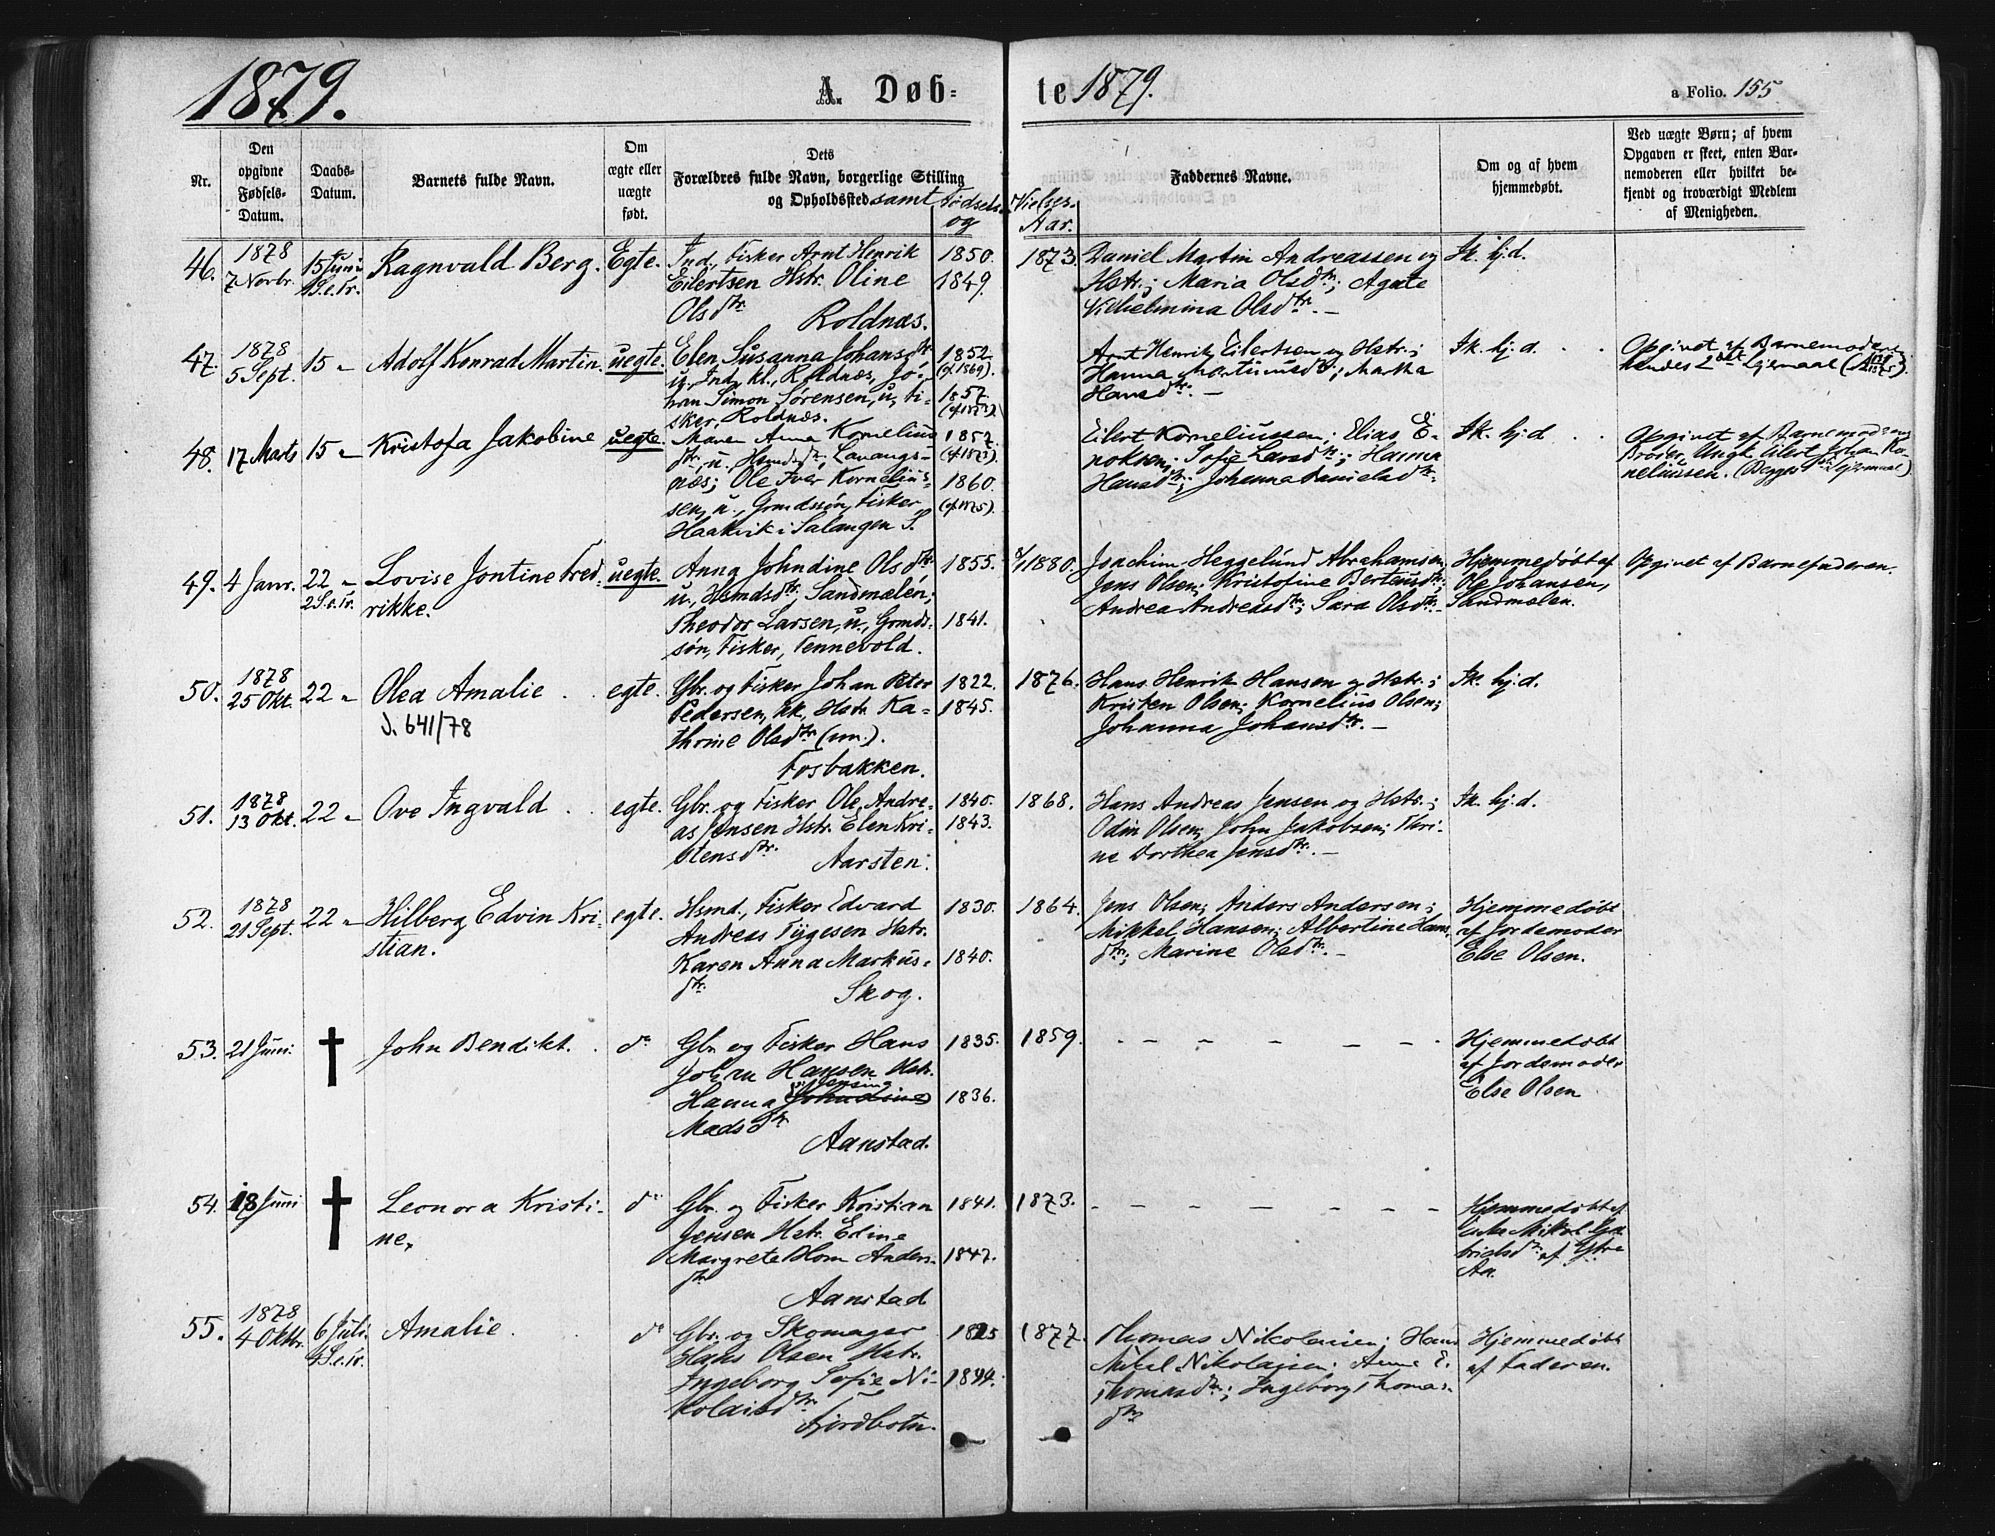 1879.
A. Døb-
te 1879.
a Folio. 155.
Nr.
Den
opgivne
Fødsels-
Datum.
Daabs-
Datum.
Barnets fulde Navn.
Om
ægte eller
uægte
født.
Dets
Forældres fulde Navn, borgerlige Stilling
og Opholdssted samt Fødsels-
og
Vielses-
Aar.
Faddernes Navne.
Om og af hvem
hjemmedøbt.
Ved uægte Børn; af hvem
Opgaven er skeet, enten Bar-
nemoderen eller hvilket be-
kjendt og troværdigt Medlem
af Menigheden.
46.
1878
7 Novbr.
15 Juni
1 S. e. Tr.
Ragnvald Berg.
Egte.
Ind., Fisker Arnt Henrik
Eilertsen Hstr. Oline
Olsdtr.
Roldnæs.
1850.
1849.
1873.
Daniel Martin Andreassen og
Hstr.; Maria Olsdtr.; Agate
Vilhelmina Olsdtr. —
Ik. hj. d.
47.
1878
5 Sept.
15 „
Adolf Konrad Martin.
uegte.
Elen Susanna Johansdtr.
u. Ind. kl., Roldnæs, Jo-
han Simon Sørensen, u, Fi-
sker, Roldnæs.
1852.
(cf 1869).
1857.
Arnt Henrik Eilertsen og Hstr.;
Hanna Mortinusdtr.; Martha
Hansdtr. —
Ik. hj. d.
Opgivet af Barnemoderen
hendes 2det Lejermaal
48.
17 Marts
15 „
Kristofa Jakobine
uegte.
Maren Anna Kornelius-
dtr. u. Hsmdsdtr., Lavangs-
næs; Ole Iver Kornelius-
sen, u., Grmdssøn, Fisker
Haakvik i Salangen S.
1852.
1860.
(cf 1875).
Eilert Korneliussen; Elias E-
noksen; Sofie Larsdtr.; Hanna
Hansdtr.; Johanna Danielsdtr.
Ik. hj. d.
Opgivet af Barnemoderens
Broder, Ungk. Eilert Johan Kor-
neliussen. (Begges Lejermaal)
49.
4 Janr.
22 „
2 S. e. Tr.
Lovise Jontine Fred-
rikke.
uegte.
Anna Johndine Olsdtr.
u., Hsmdsdtr. Sandmælen;
Theodor Larsen, u., Grmds-
søn, Fisker, Tennevold.
1855.
1841.
1880.
Joachim Heggelund Abrahamsen,
Jens Olsen; Kristofine Berteusdtr.;
Andrea Andreasdtr.; Sara Olsdtr. —
Hjemmedøbt af
Ole Johansen,
Sandmælen.
Opgivet af Barnefaderen.
50.
1878
25 Okt.
22 „
Olea Amalie
J. 641/78
egte.
Gbr. og Fisker Johan Peter
Pedersen, kk, Hstr. Ka-
thrine Olsdtr. (um.).
Fosbakken.
1822.
1845.
1876.
Hans Henrik Hansen og Hstr.;
Kristen Olsen; Kornelius Olsen;
Johanna Johansdtr. —
Ik. hj. d.
51.
1878
13 Okt.
22 „
Ove Ingvald
egte.
Gbr. og Fisker Ole Andre-
as Jensen Hstr. Elen Kri-
stensdtr.
Aarsten.
1840.
1843.
1868.
Hans Andreas Jensen og Hstr.;
Odin Olsen; John Jakobsen; Thri-
ne Dorthea Jensdtr. —
Ik. hj. d.
52.
1878
21 Sept.
22 „
Hilberg Edvin Kri-
stian.
egte.
Hsmd., Fisker Edvard
Andreas Tygesen Hstr.
Karen Anna Markus-
dtr.
Skog.
1830.
1840.
1864.
Jens Olsen; Anders Andersen;
Mikkel Hansen; Albertine Hans-
dtr.; Marine Olsdtr. —
Hjemmedøbt
af Jordemoder
Else Olsen.
53.
21 Juni.
†
John Bendikt.
do
Gbr. og Fisker Hans
Johan Hansen Hstr.
Jensine
Hanna Johndine
Madsdtr.
Aanstad.
1835.
1836.
1859.
— — — — — —
Hjemmedøbt
af Jordemoder
Else Olsen
54.
18 Juni
†
Leonora Kristi-
ne.
do
Gbr. og Fisker Kristian
Jensen Hstr. Edine
Margrete Blom Anders-
dtr.
Aanstad
1841.
1847.
1873.
— — — — — — —
Hjemmedøbt af
af Ytre
Aa.
55.
1878
4 Oktbr.
6 Juli.
4 S. e. Tr.
Amalie
do
Gbr. og Skomager
Hans Olsen Hstr.
Ingeborg Sofie Ni-
kolaisdtr.
Fjordbotn.
1825
1844.
1877.
Thomas Nikolaisen; Hans
Mikal Nikolaisen; Anne E.
Thomasdtr.; Ingeborg Thomas-
dtr.
Hjemmedøbt
af Faderen.